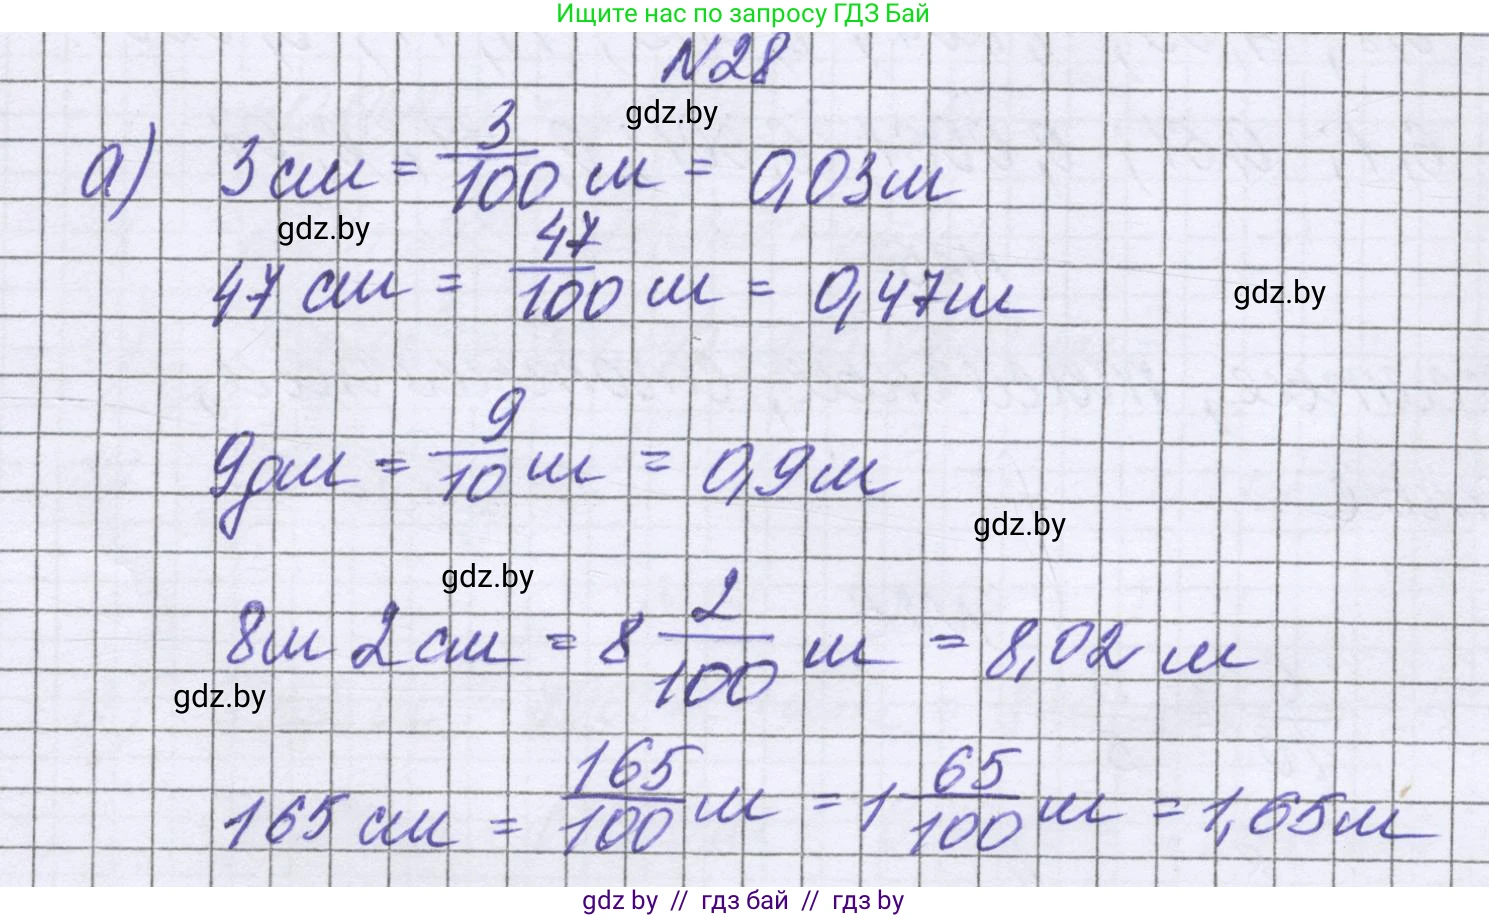 Ищите нас по запросу ГДЗ Бай
№28
gdz.by
а) 3 см = 3/100 м = 0,03 м
gdz.by
47 см = 47/100 м = 0,47 м
gdz.by
9 дм = 9/10 м = 0,9 м
gdz.by
gdz.by
8 м 2 см = 8 2/100 м = 8,02 м
gdz.by
165 см = 165/100 м = 1 65/100 м = 1,65 м
gdz.by // гдз бай // гдз by